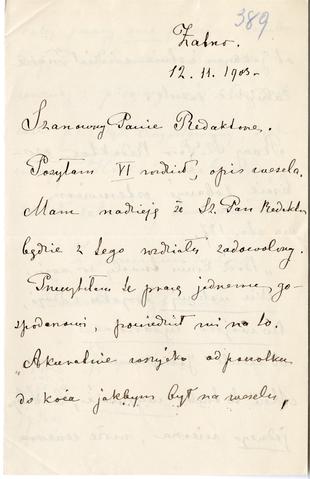 389
Żabno.
12. 11. 1903.
Szanowny Panie Redaktorze.
Posyłam VI rozdział, opis wesela.
Mam nadzieję że Sz. Pan Redaktor
będzie z tego rozdziału zadowolony.
Przeczytałem tę pracę jednemu go-
spodarzowi, powiedział mi na to.
"Akuratnie wszystko od początku
do końca jakbym był na weselu,